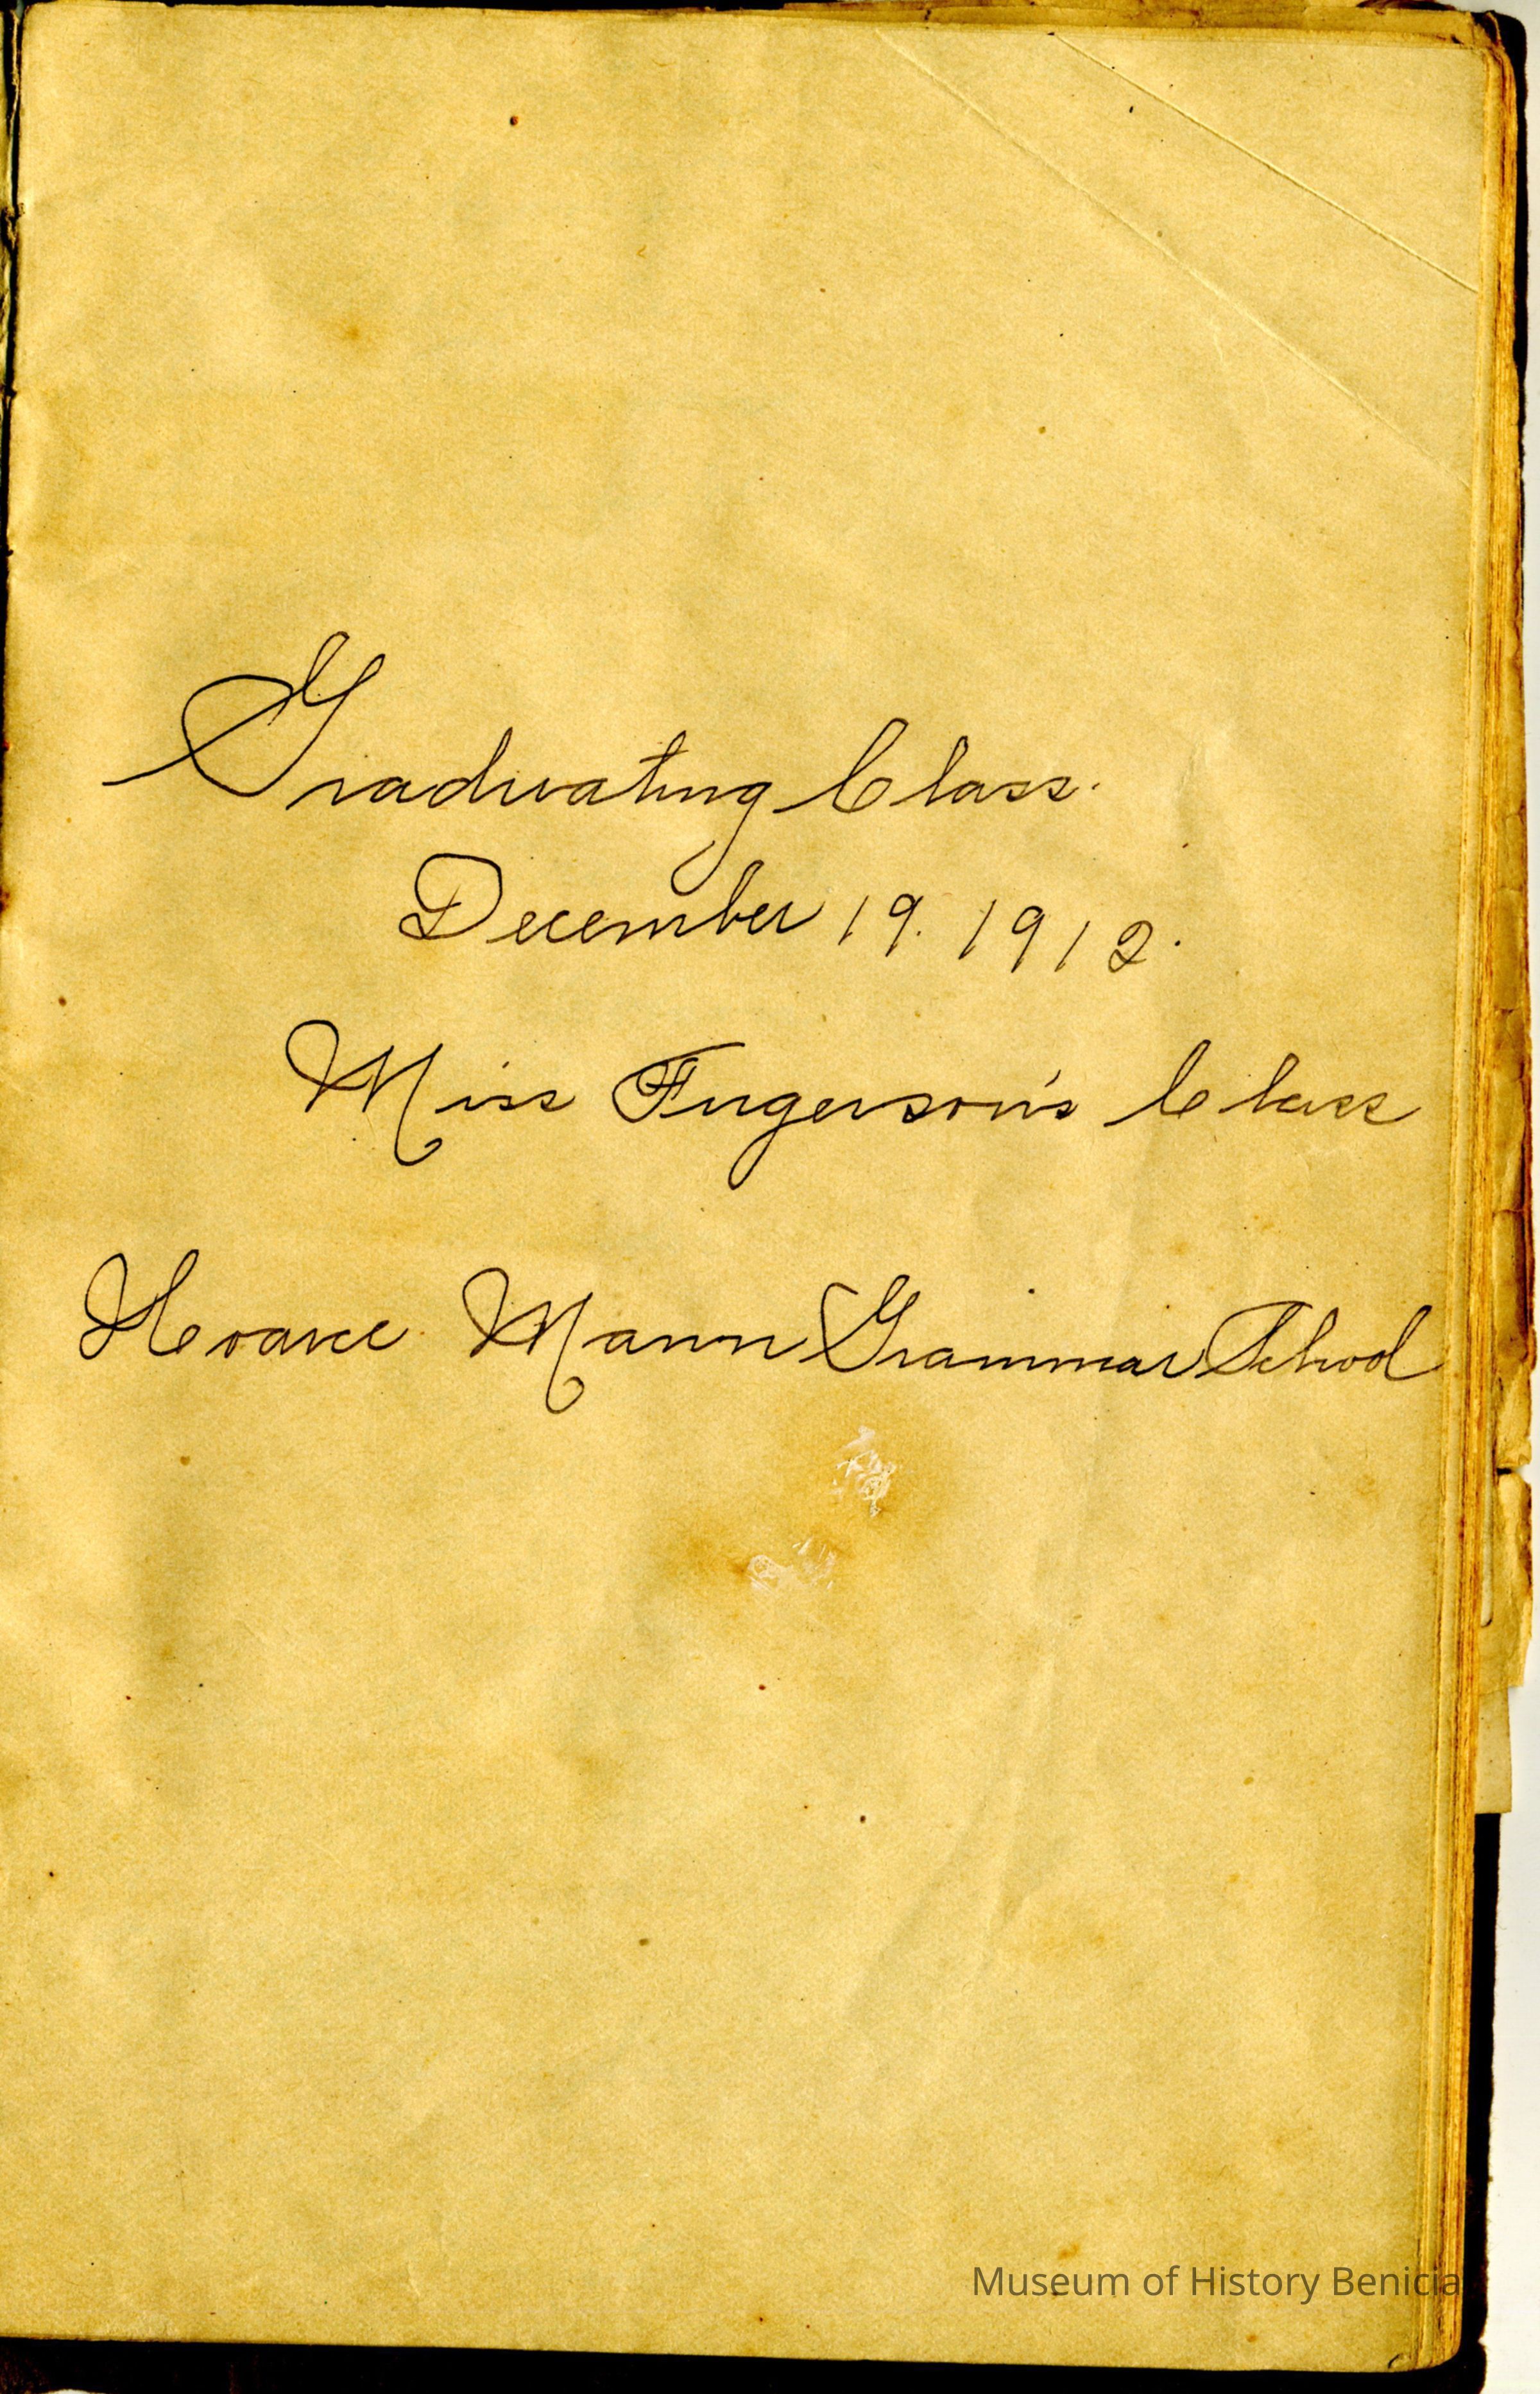 Graduating Class.
December 19. 1912.
Miss Furgerson's Class
Horace Mann Grammar School
Museum of History Benicia